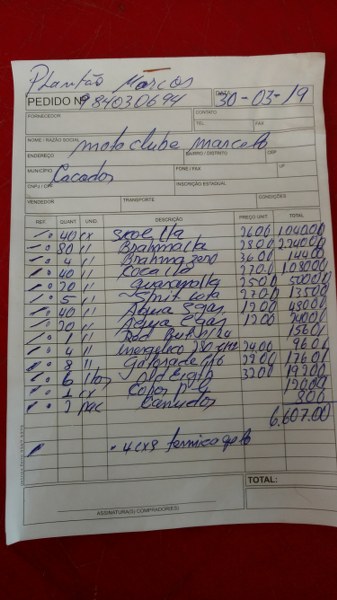 Plantão Marcos
PEDIDO Nº 984030694 DATA 30-03-19
FORNECEDOR CONTATO
TEL. FAX
NOME / RAZÃO SOCIAL moto clube marcelo
ENDEREÇO BAIRRO / DISTRITO CEP
MUNICÍPIO FONE / FAX UF
CNPJ / CPF INSCRIÇÃO ESTADUAL
VENDEDOR TRANSPORTE CONDIÇÕES
REF. QUANT. UNID. DESCRIÇÃO PREÇO UNIT. TOTAL
40 cx Skol lta 26.00 1.040.00
80 11 Brahma lta 28.00 2.240.00
4 11 Brahma zero 36.00 144.00
40 11 Coca lta 27.0 1.080.00
20 11 guarana lta 25.00 500.00
5 11 Sprit lata 27.0 135.00
40 11 Agua S gas 12.00 480.00
20 11 Agua gas 12.00
1 11 Red Bul
4 11 energetico 24.00 96.0
8 11 Gatorade 22.00 176.0
6 32.00 192.00
1 cx
2 pac Canudos 8.00
6.607.00
4 cxs termica gelo
TOTAL:
ASSINATURA(S) COMPRADOR(ES)